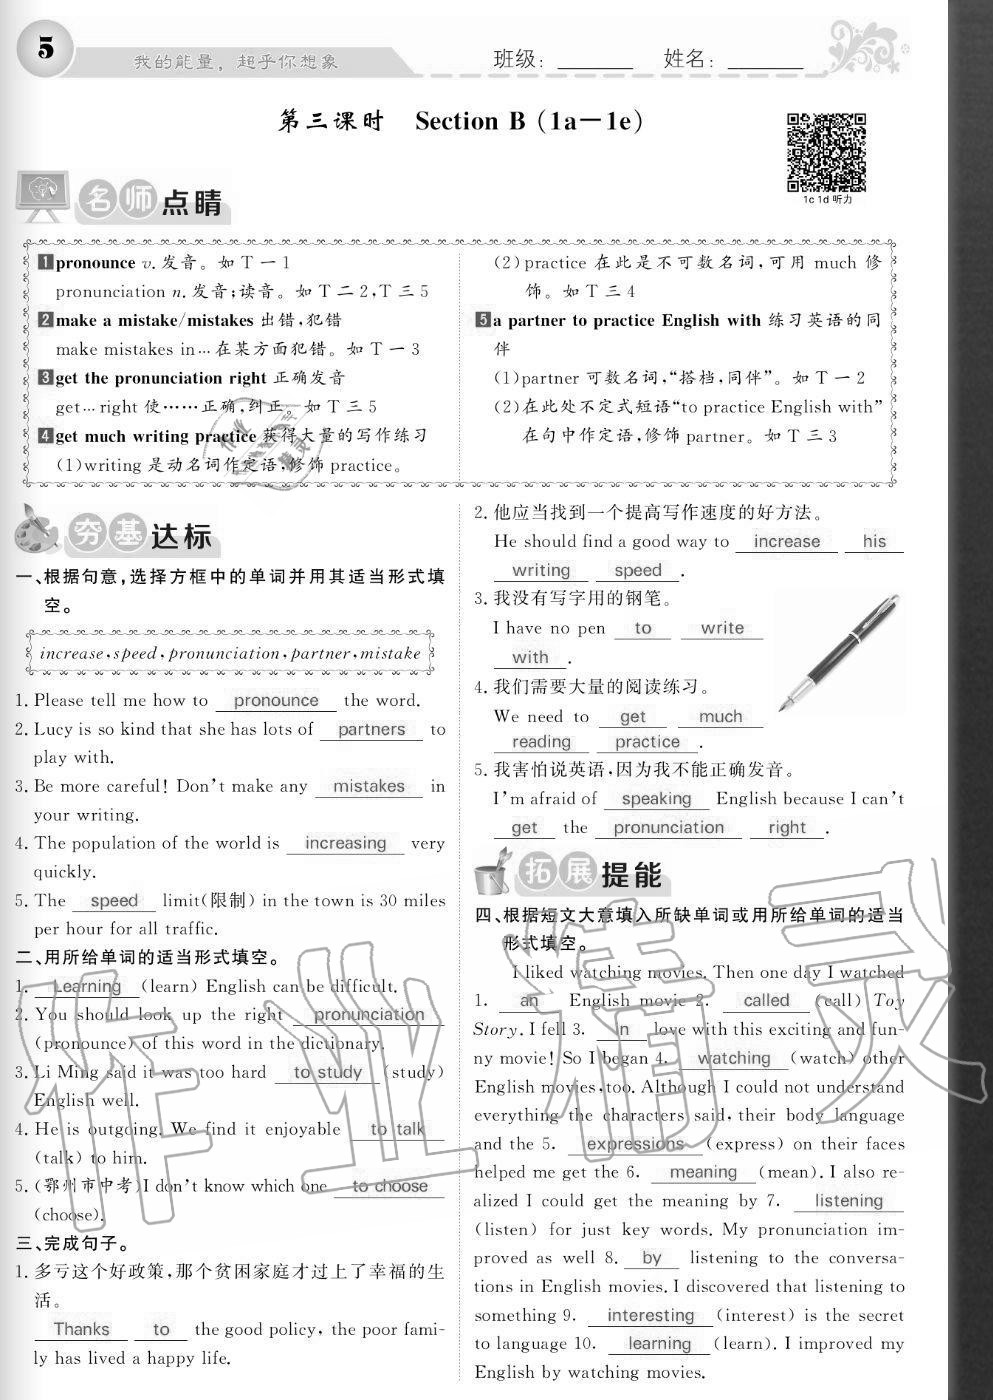 5
我的能量，超乎你想象
班级：
姓名：
第三课时 Section B (1a—1e)
1c 1d 听力
名师点睛
1 pronounce v. 发音。如 T 一 1
pronunciation n. 发音;读音。如 T 二 2,T 三 5
2 make a mistake/mistakes 出错,犯错
make mistakes in… 在某方面犯错。如 T 一 3
3 get the pronunciation right 正确发音
get…right 使……正确,纠正。如 T 三 5
4 get much writing practice 获得大量的写作练习
(1)writing 是动名词作定语,修饰 practice。
(2)practice 在此是不可数名词,可用 much 修
饰。如 T 三 4
5 a partner to practice English with 练习英语的同
伴
(1)partner 可数名词,“搭档,同伴”。如 T 一 2
(2)在此处不定式短语“to practice English with”
在句中作定语,修饰 partner。如 T 三 3
夯基达标
一、根据句意,选择方框中的单词并用其适当形式填
空。
increase, speed, pronunciation, partner, mistake
1. Please tell me how to pronounce the word.
2. Lucy is so kind that she has lots of partners to
play with.
3. Be more careful! Don't make any mistakes in
your writing.
4. The population of the world is increasing very
quickly.
5. The speed limit(限制) in the town is 30 miles
per hour for all traffic.
二、用所给单词的适当形式填空。
1. Learning (learn) English can be difficult.
2. You should look up the right pronunciation
(pronounce) of this word in the dictionary.
3. Li Ming said it was too hard to study (study)
English well.
4. He is outgoing. We find it enjoyable to talk
(talk) to him.
5. (鄂州市中考)I don't know which one to choose
(choose).
三、完成句子。
1. 多亏这个好政策,那个贫困家庭才过上了幸福的生
活。
Thanks to the good policy, the poor fami-
ly has lived a happy life.
2. 他应当找到一个提高写作速度的好方法。
He should find a good way to increase his
writing speed.
3. 我没有写字用的钢笔。
I have no pen to write
with.
4. 我们需要大量的阅读练习。
We need to get much
reading practice.
5. 我害怕说英语,因为我不能正确发音。
I'm afraid of speaking English because I can't
get the pronunciation right.
拓展提能
四、根据短文大意填入所缺单词或用所给单词的适当
形式填空。
I liked watching movies. Then one day I watched
1. an English movie 2. called (call) Toy
Story. I fell 3. in love with this exciting and fun-
ny movie! So I began 4. watching (watch) other
English movies, too. Although I could not understand
everything the characters said, their body language
and the 5. expressions (express) on their faces
helped me get the 6. meaning (mean). I also re-
alized I could get the meaning by 7. listening
(listen) for just key words. My pronunciation im-
proved as well 8. by listening to the conversa-
tions in English movies. I discovered that listening to
something 9. interesting (interest) is the secret
to language 10. learning (learn). I improved my
English by watching movies.
作业精灵